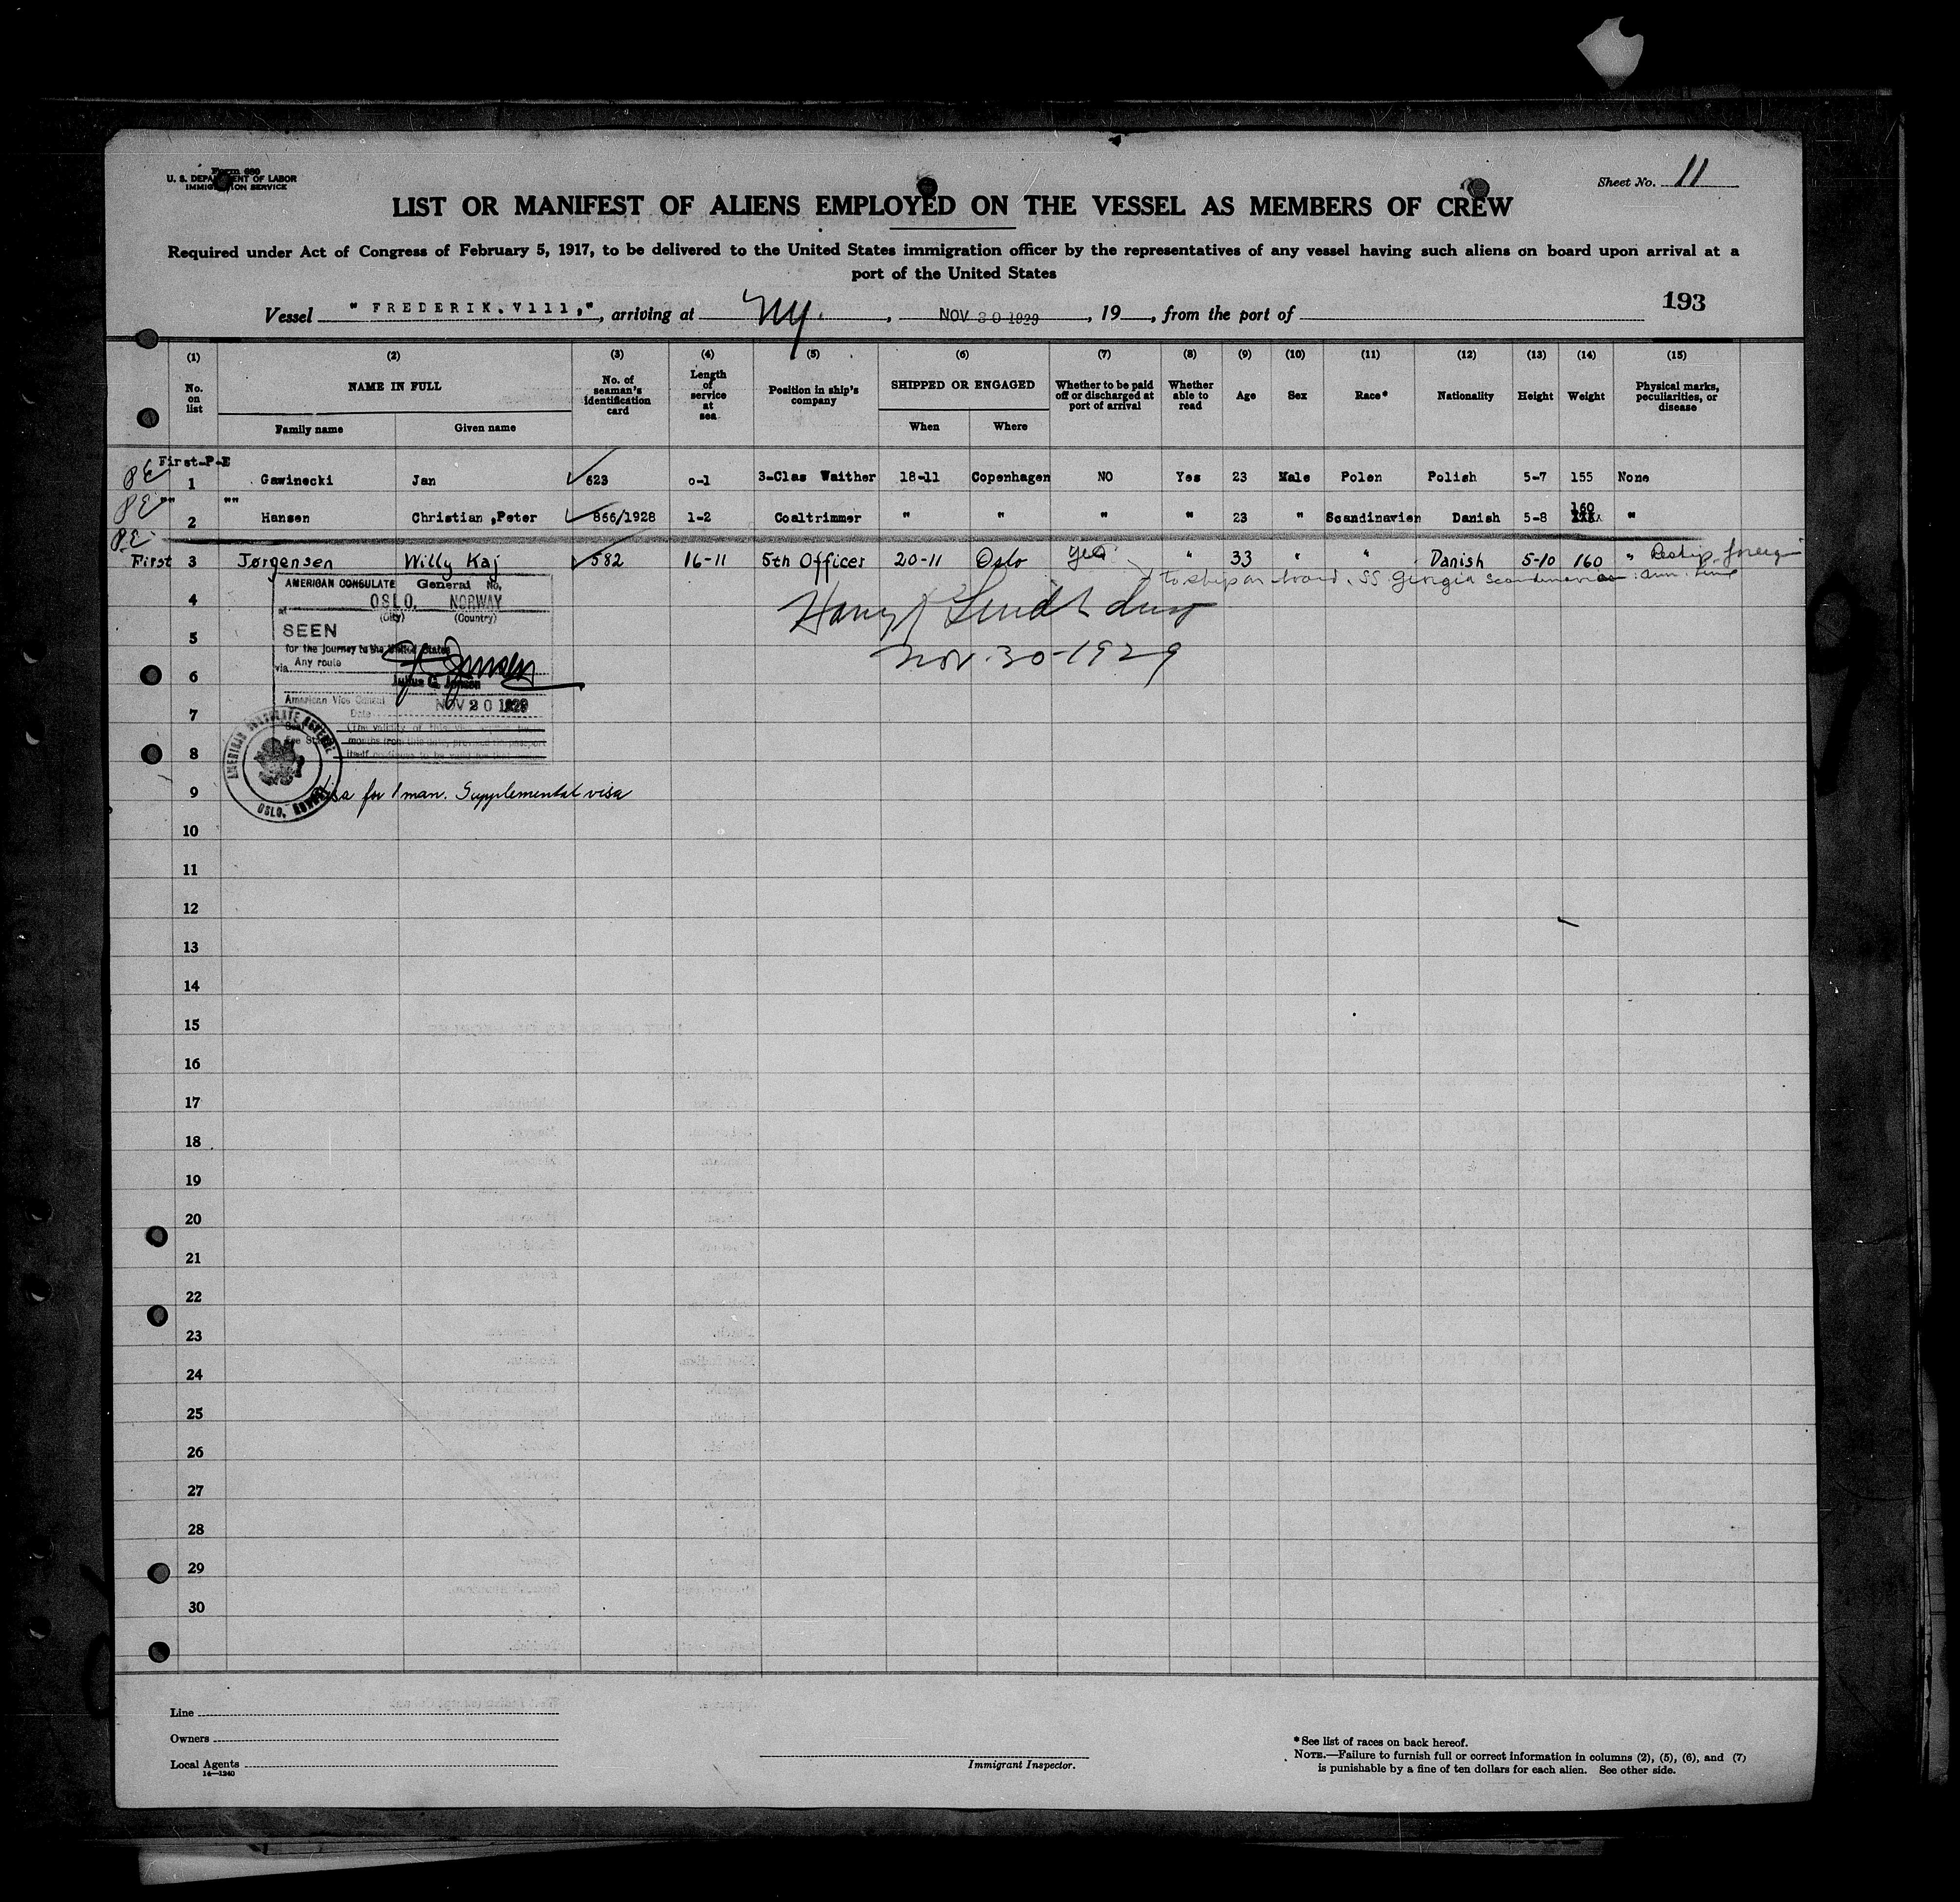 Form 680
U. S. DEPARTMENT OF LABOR
IMMIGRATION SERVICE
Sheet No. 11
LIST OR MANIFEST OF ALIENS EMPLOYED ON THE VESSEL AS MEMBERS OF CREW
Required under Act of Congress of February 5, 1917, to be delivered to the United States immigration officer by the representatives of any vessel having such aliens on board upon arrival at a
port of the United States
193
Vessel " FREDERIK.V111,", arriving at NY. , NOV 30 1929 , 19 , from the port of
(1) (2) (3) (4) (5) (6) (7) (8) (9) (10) (11) (12) (13) (14) (15)
No. on list NAME IN FULL No. of seaman's identification card Length of service at sea Position in ship's company SHIPPED OR ENGAGED Whether to be paid off or discharged at port of arrival Whether able to read Age Sex Race* Nationality Height Weight Physical marks, peculiarities, or disease
Family name Given name When Where
First-P-E
PE 1 Gawinecki Jan 623 o-1 3-Clas Waither 18-11 Copenhagen NO Yes 23 Male Polen Polish 5-7 155 None
PE "" ""
160
2 Hansen Christian ,Peter 866/1928 1-2 Coaltrimmer " " " " 23 " Scandinavien Danish 5-8 "
PE
First 3 Jørgensen Willy Kaj 582 16-11 5th Officer 20-11 Oslo yes " 33 " " Danish 5-10 160 " Reship foreign
to ship on board SS Georgia Scandinavian Am. Line
AMERICAN CONSULATE General No.
at OSLO, NORWAY
(City) (Country)
SEEN
for the journey to the United States
via Any route
Julius C. Jensen
American Vice Consul
Date NOV 20 1929
(The validity of this
months from this date, provided the passport
itself continues to be valid for that
AMERICAN CONSULATE GENERAL
OSLO, NORWAY
Visa for 1 man. Supplemental visa
Nov. 30-1929
4
5
6
7
8
9
10
11
12
13
14
15
16
17
18
19
20
21
22
23
24
25
26
27
28
29
30
Line
Owners
Local Agents
14—1240
Immigrant Inspector.
* See list of races on back hereof.
NOTE.—Failure to furnish full or correct information in columns (2), (5), (6), and (7)
is punishable by a fine of ten dollars for each alien. See other side.